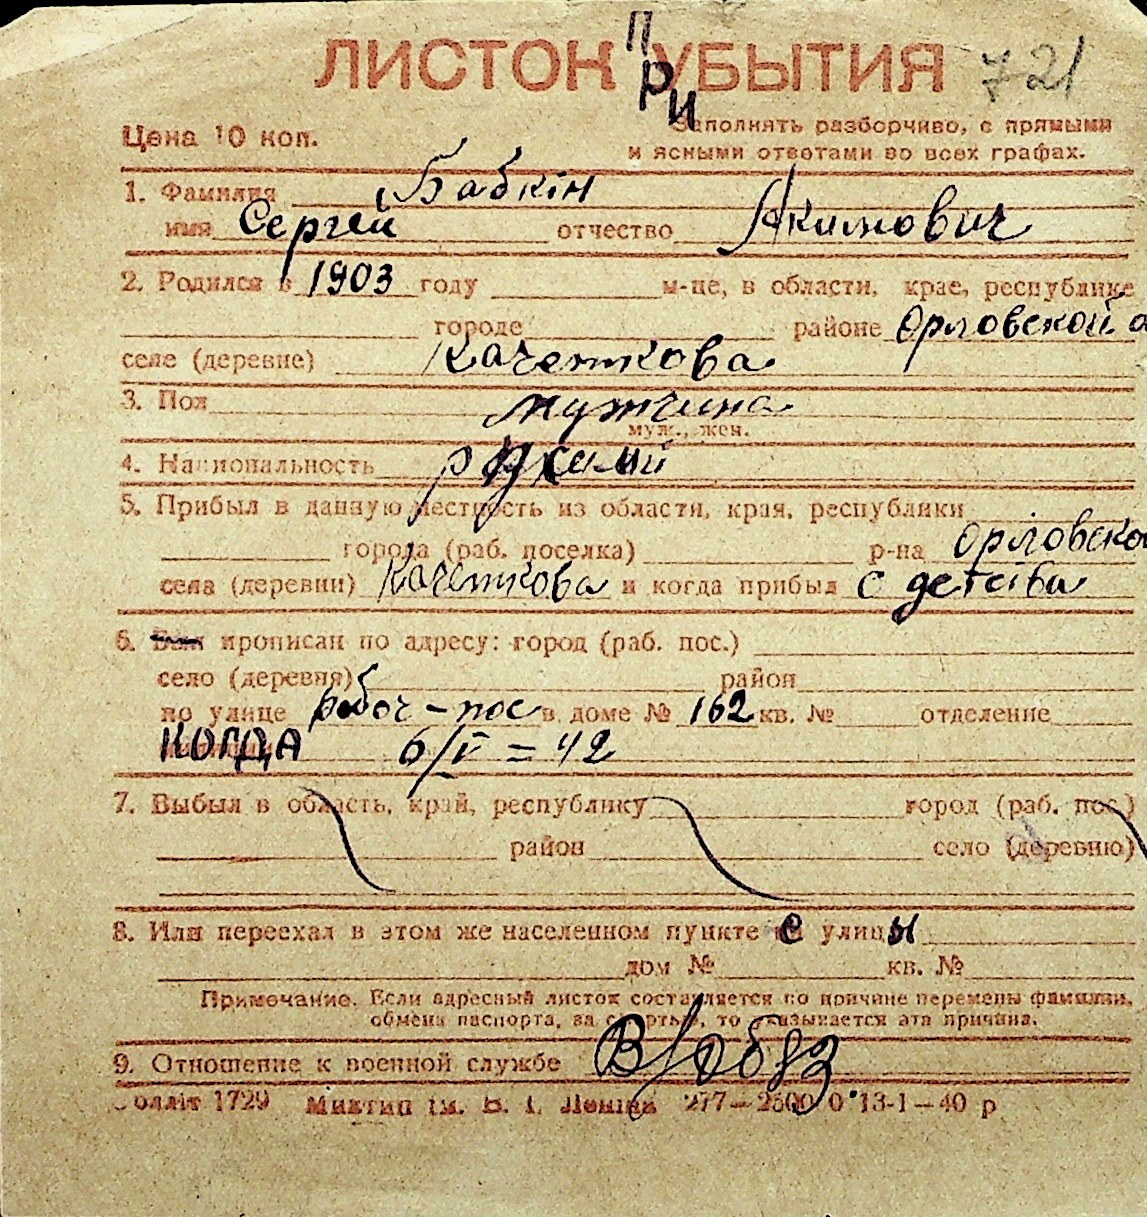 ЛИСТОК ПРИ УБЫТИЯ 721
Цена 10 коп.
Заполнять разборчиво, с прямыми
и ясными ответами во всех графах.
1. Фамилия Бабкін
имя Сергей отчество Акимович
2. Родился в 1903 году м-це, в области, крае, республике
городе районе Орловской
селе (деревне) Каченкова
3. Пол мужчина
муж., жен.
4. Национальность
5. Прибыл в данную местность из области, края, республики
города (раб. поселка) р-на Орловско
села (деревни) Каченкова и когда прибыл с детства
6. Был прописан по адресу: город (раб. пос.)
село (деревня) район
по улице рабоч-пос в доме № 162 кв. № отделение
КОГДА 6/V = 42
7. Выбыл в область, край, республику город (раб. пос.)
район село (деревню)
8. Или переехал в этом же населенном пункте с улицы
дом № кв. №
Примечание. Если адресный листок составляется по причине перемены фамилии,
обмена паспорта, за смертью, то указывается эта причина.
9. Отношение к военной службе В/обяз
олліт 1729 Миктип ім. В. І. Леніна 277—2500 0 13-1—40 р